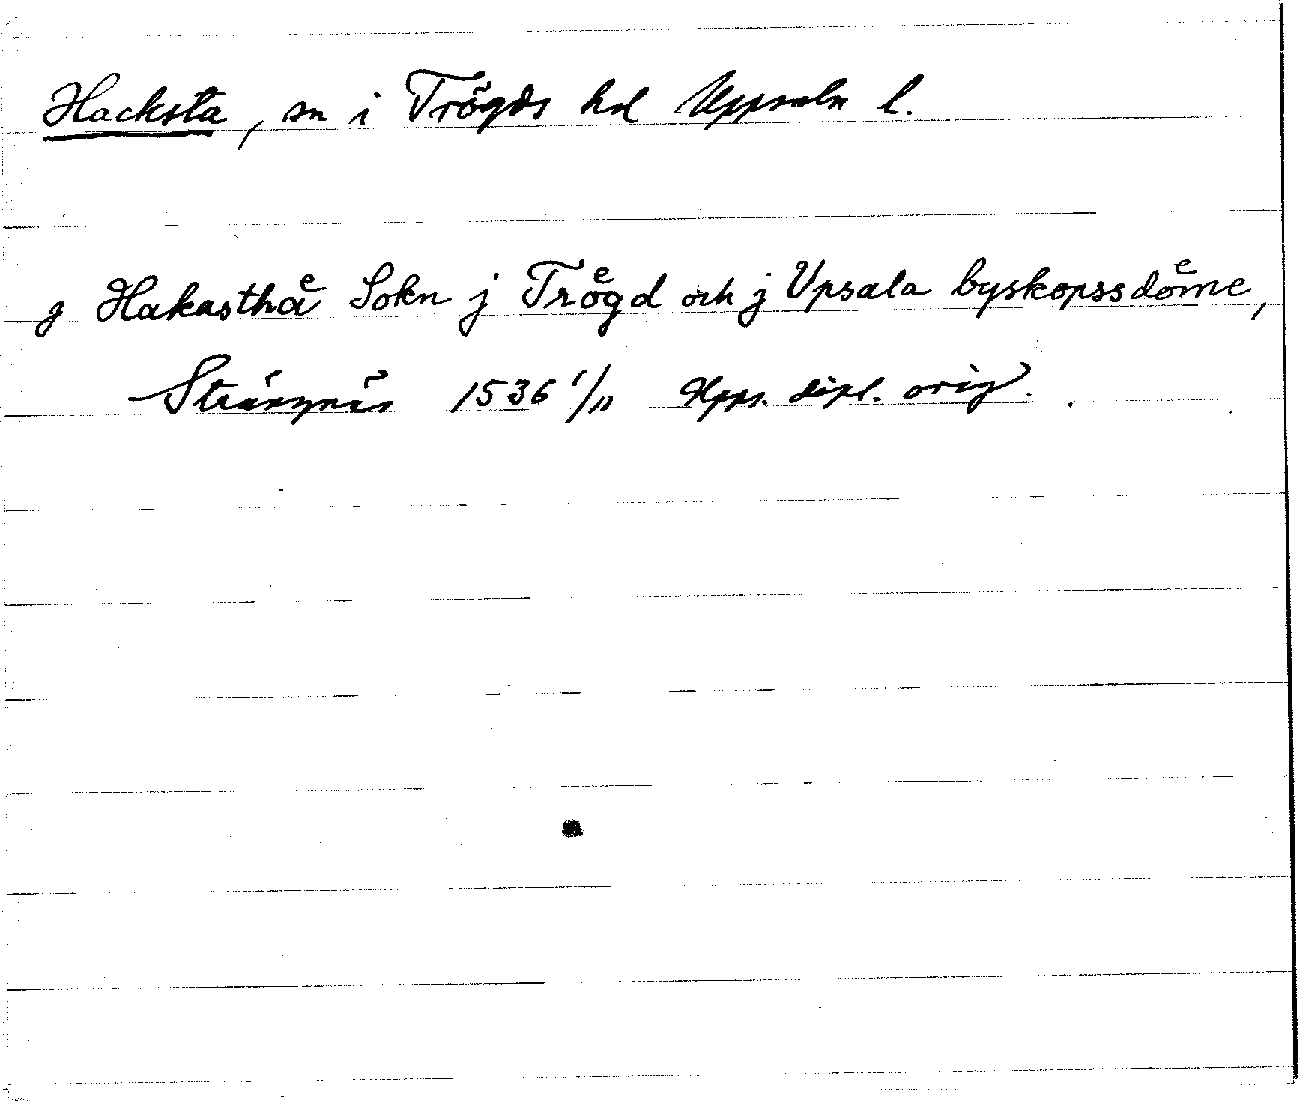 Hacksta, sn i Trögds hd Uppsala l.
j Hakasthaͤ Sokn j Troͤgd och j Vpsala byskopssdoͤme,
Strängnäs 1536 1/11 Upps. dipl. orig.